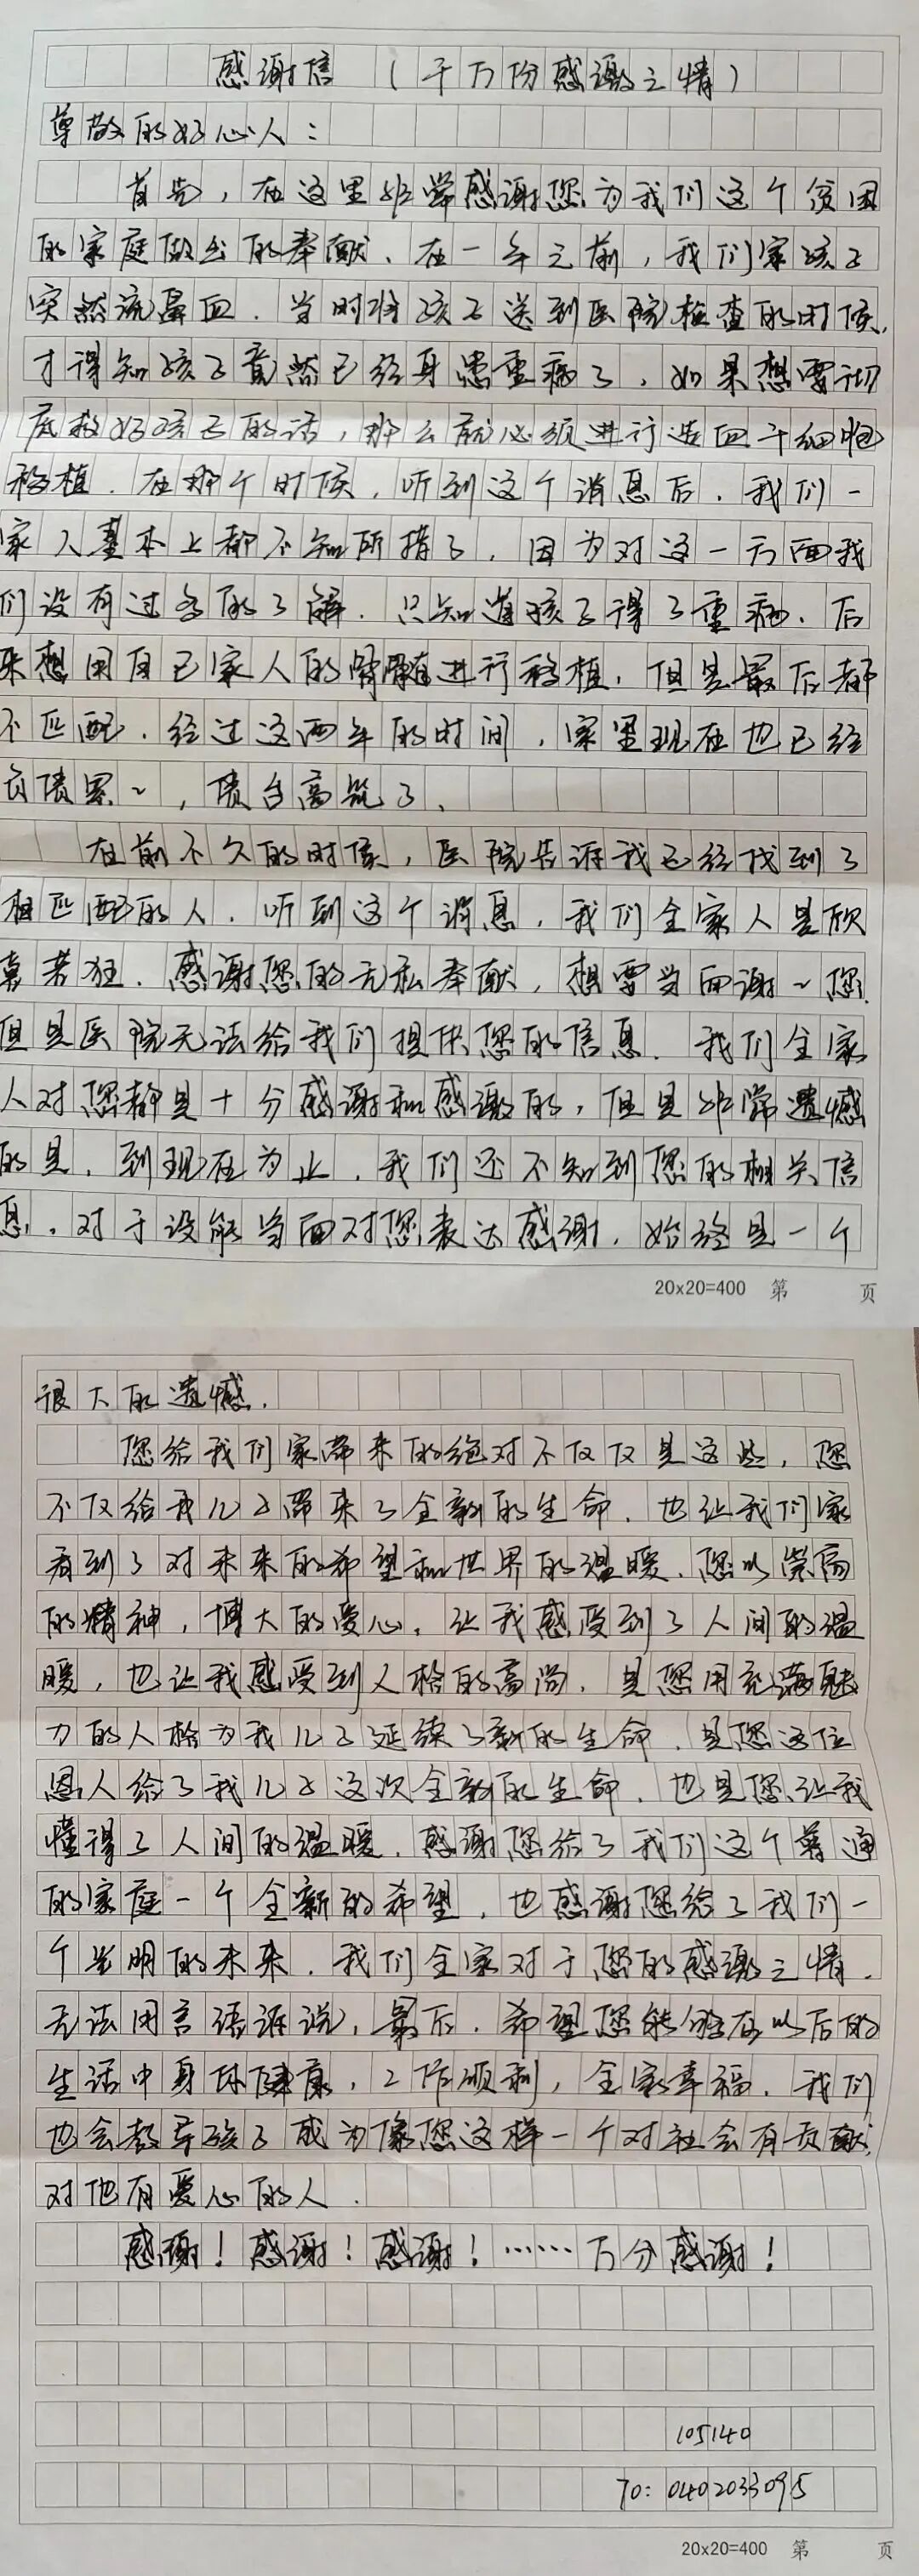 感谢信 （千万份感谢之情）
尊敬的好心人：
首先，在这里非常感谢您为我们这个贫困
的家庭做出的奉献、在一年之前，我们家孩子
突然流鼻血．当时将孩子送到医院检查的时候．
才得知孩子竟然已经身患重病了．如果想要彻
底救好孩子的话，那么就必须进行造血干细胞
移植．在那个时候，听到这个消息后．我们一
家人基本上都不知所措了．因为对这一方面我
们没有过多的了解．只知道孩子得了重病、后
来想用自己家人的骨髓进行移植．但是最后都
不匹配．经过这两年的时间，家里现在也已经
负债累~，债台高筑了．
在前不久的时候，医院告诉我已经找到了
相匹配的人．听到这个消息，我们全家人是欣
喜若狂．感谢您的无私奉献，想要当面谢~您．
但是医院无法给我们提供您的信息．我们全家
人对您都是十分感谢和感激的，但是非常遗憾
的是，到现在为止．我们还不知到您的相关信
息．对于没能当面对您表达感谢．始终是一个
很大的遗憾．
您给我们家带来的绝对不仅仅是这些，您
不仅给我儿子带来了全新的生命．也让我们家
看到了对未来的希望和世界的温暖．您以崇高
的精神，博大的爱心．让我感受到了人间的温
暖，也让我感受到人格的高尚．是您用充满魅
力的人格为我儿子延续了新的生命．是您这位
恩人给了我儿子这次全新的生命．也是您让我
懂得了人间的温暖．感谢您给了我们这个普通
的家庭一个全新的希望，也感谢您给了我们一
个光明的未来．我们全家对于您的感激之情．
无法用言语诉说，最后．希望您能够在以后的
生活中身体健康，工作顺利，全家幸福．我们
也会教导孩子成为像您这样一个对社会有贡献．
对他有爱心的人．
感谢！感谢！感谢！……万分感谢！
105140
To: 0402033095
20x20=400 第 页
20x20=400 第 页